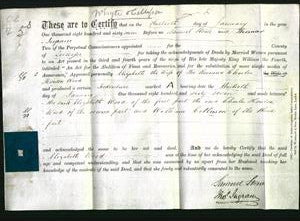 Whyte & Collisson
These are to Certify that on the thirtieth day of January
One thousand eight hundred and sixty one before us Samuel and Thomas
Ingram
Two of the Perpetual Commissioners appointed for the County
of for taking the acknowledgments of Deeds by Married Women pursuant
to an Act passed in the third and fourth years of the reign of His late Majesty King William the Fourth,
intituled "An Act for the Abolition of Fines and Recoveries, and for the substitution of more simple modes
of Assurance," Appeared personally Elizabeth the wife of Charles
Wood
and produced a certain Indenture marked A bearing date the thirtieth
day of January One thousand eight hundred and sixty one and made between
the said Elizabeth Wood of the first part the said Charles
Wood of the second part and William Collisson of the third
part
and acknowledged the same to be her act and deed. And we do hereby Certify that the said
Elizabeth Wood was at the time of her acknowledging the said deed of full
age and competent understanding and that she was examined by us apart from her Husband touching her
knowledge of the contents of the said Deed, and that she freely and voluntarily consented to the same.
Samuel
Thos Ingram